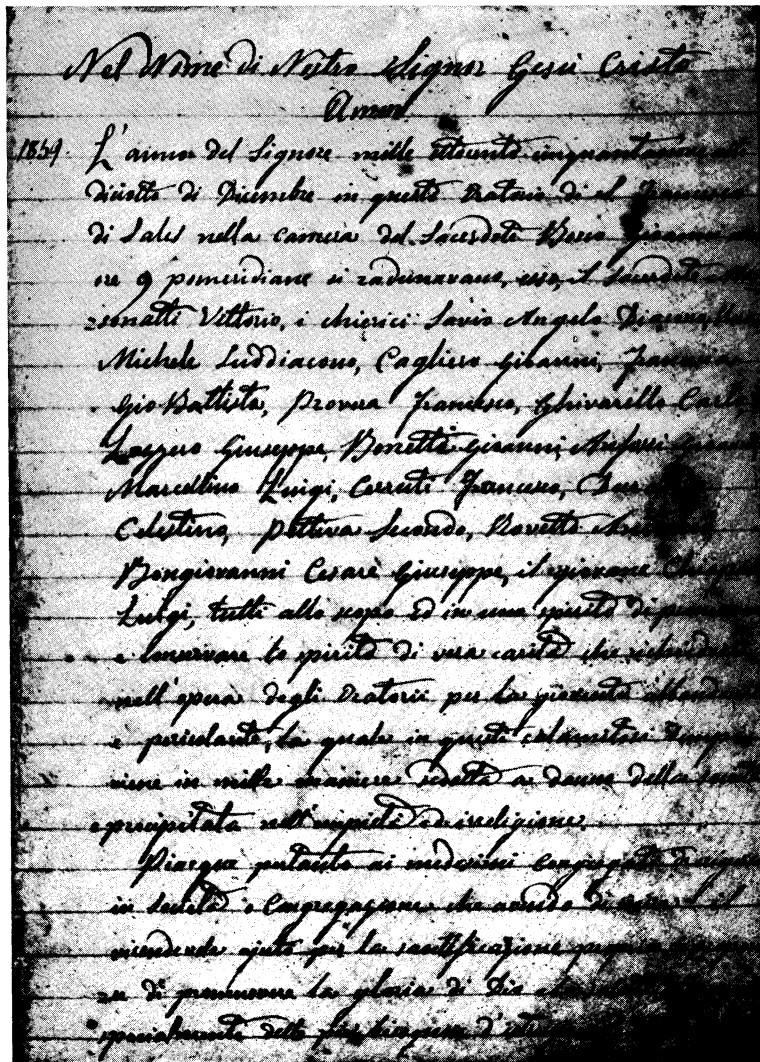 Nel Nome di Nostro Signor Gesù Cristo
Amen
1859. L'anno del Signore mille ottocento cinquantanove
diciotto di Dicembre in questo Oratorio di
di Sales nella camera del Sacerdote Bosco Giovanni
ore 9 pomeridiane si radunavano, esso, il Sacerdote
Vittorio, i chierici Savio Angelo Diacono,
Michele Suddiacono, Cagliero Giovanni,
Gio Battista, Provera Francesco, Ghivarello Carlo
Lazzero Giuseppe, Bonetti Giovanni, Anfossi
Marcellino Luigi, Cerruti Francesco,
Celestino, Pettiva Secondo, Rovetto
Bongiovanni Cesare Giuseppe, il giovane
Luigi, tutti allo scopo ed in uno spirito di
e conservare lo spirito di vera carità che
nell'opera degli Oratorii per la gioventù
e pericolante, la quale in questi calamitosi tempi
viene in mille maniere sedotta a danno della
e precipitata nell'empietà ed irreligione.
Piacque pertanto ai medesimi
in Società o Congregazione che avendo di
vicendevole ajuto per la santificazione
di promuovere la gloria di Dio
specialmente delle più bisognose